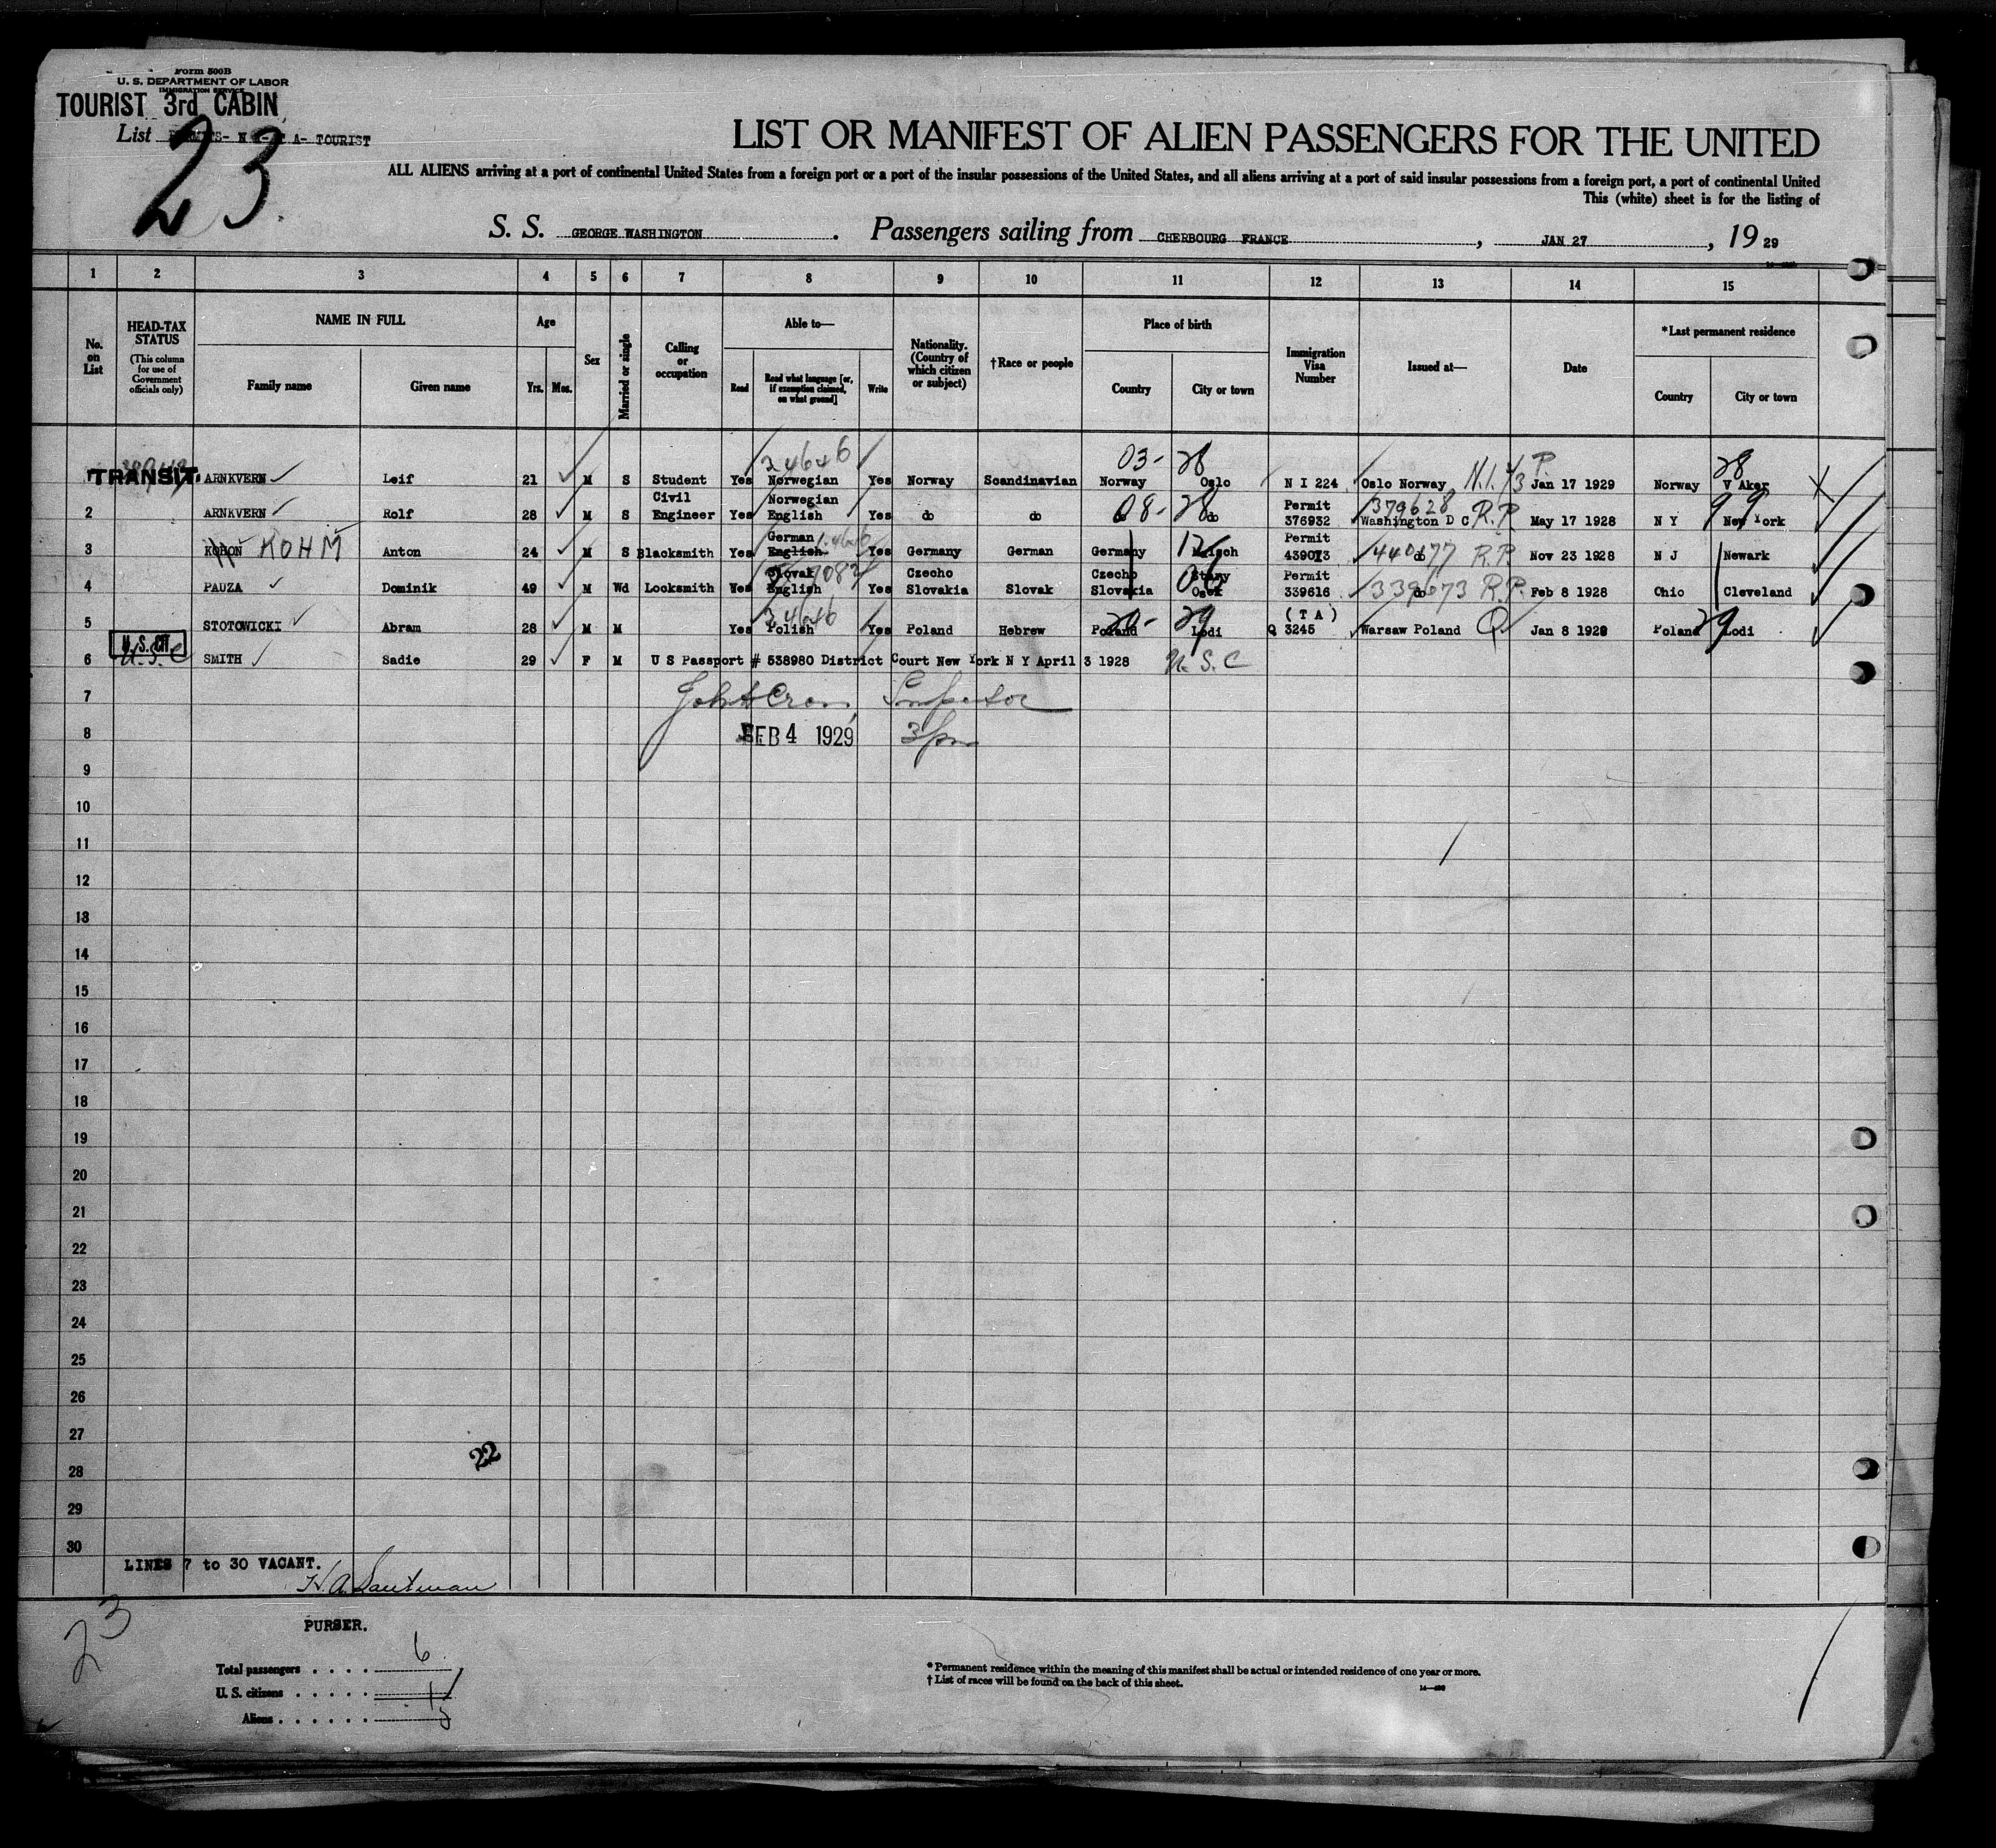 Form 500B
U. S. DEPARTMENT OF LABOR
IMMIGRATION SERVICE
TOURIST 3rd CABIN
List PERMITS- N - T A- TOURIST
23
LIST OR MANIFEST OF ALIEN PASSENGERS FOR THE UNITED
ALL ALIENS arriving at a port of continental United States from a foreign port or a port of the insular possessions of the United States, and all aliens arriving at a port of said insular possessions from a foreign port, a port of continental United
This (white) sheet is for the listing of
S. S. GEORGE WASHINGTON . Passengers sailing from CHERBOURG FRANCE , JAN 27 , 19 29
1 2 3 4 5 6 7 8 9 10 11 12 13 14 15
No. on List
HEAD-TAX STATUS (This column for use of Government officials only)
NAME IN FULL
Family name Given name
Age
Yrs. Mos.
Sex
Married or single
Calling or occupation
Able to—
Read Read what language [or, if exemption claimed, on what ground] Write
Nationality. (Country of which citizen or subject)
†Race or people
Place of birth
Country City or town
Immigration Visa Number
Issued at—
Date
*Last permanent residence
Country City or town
24646 03- 28 P. 28
TRANSIT ARNKVERN Leif 21 M S Student Yes Norwegian Yes Norway Scandinavian Norway Oslo N I 224 Oslo Norway N.I. 43 Jan 17 1929 Norway V Aker
Civil Norwegian Permit 379628
2 ARNKVERN Rolf 28 M S Engineer Yes English Yes do do 08- 28 do 376932 Washington D C R.P. May 17 1928 N Y New York 99
German Permit
3 KOHON KOHM Anton 24 M S Blacksmith Yes English Yes Germany German Germany 12 439013 440177 do R.P. Nov 23 1928 N J Newark
Slovak Czecho Czecho Permit
4 PAUZA Dominik 49 M Wd Locksmith Yes English Yes Slovakia Slovak Slovakia 06 339616 339673 do R.P. Feb 8 1928 Ohio Cleveland
24646 (TA)
5 STOTOWICKI Abram 28 M M Yes Polish Yes Poland Hebrew Poland 20- 29 Lodi Q 3245 Warsaw Poland Q Jan 8 1929 Poland 29 Lodi
U.S. CIT.
U.S.C
6 SMITH Sadie 29 F M U S Passport # 538980 District Court New York N Y April 3 1928 U.S.C
7 Inspector
8 FEB 4 1929 3 pm
9
10
11
12
13
14
15
16
17
18
19
20
21
22
23
24
25
26
27
22
28
29
30
LINES 7 to 30 VACANT.
H.A. Lautman
23
PURSER.
Total passengers . . . . 6
U. S. citizens . . . . . 1
Aliens . . . . . . 5
* Permanent residence within the meaning of this manifest shall be actual or intended residence of one year or more.
† List of races will be found on the back of this sheet.